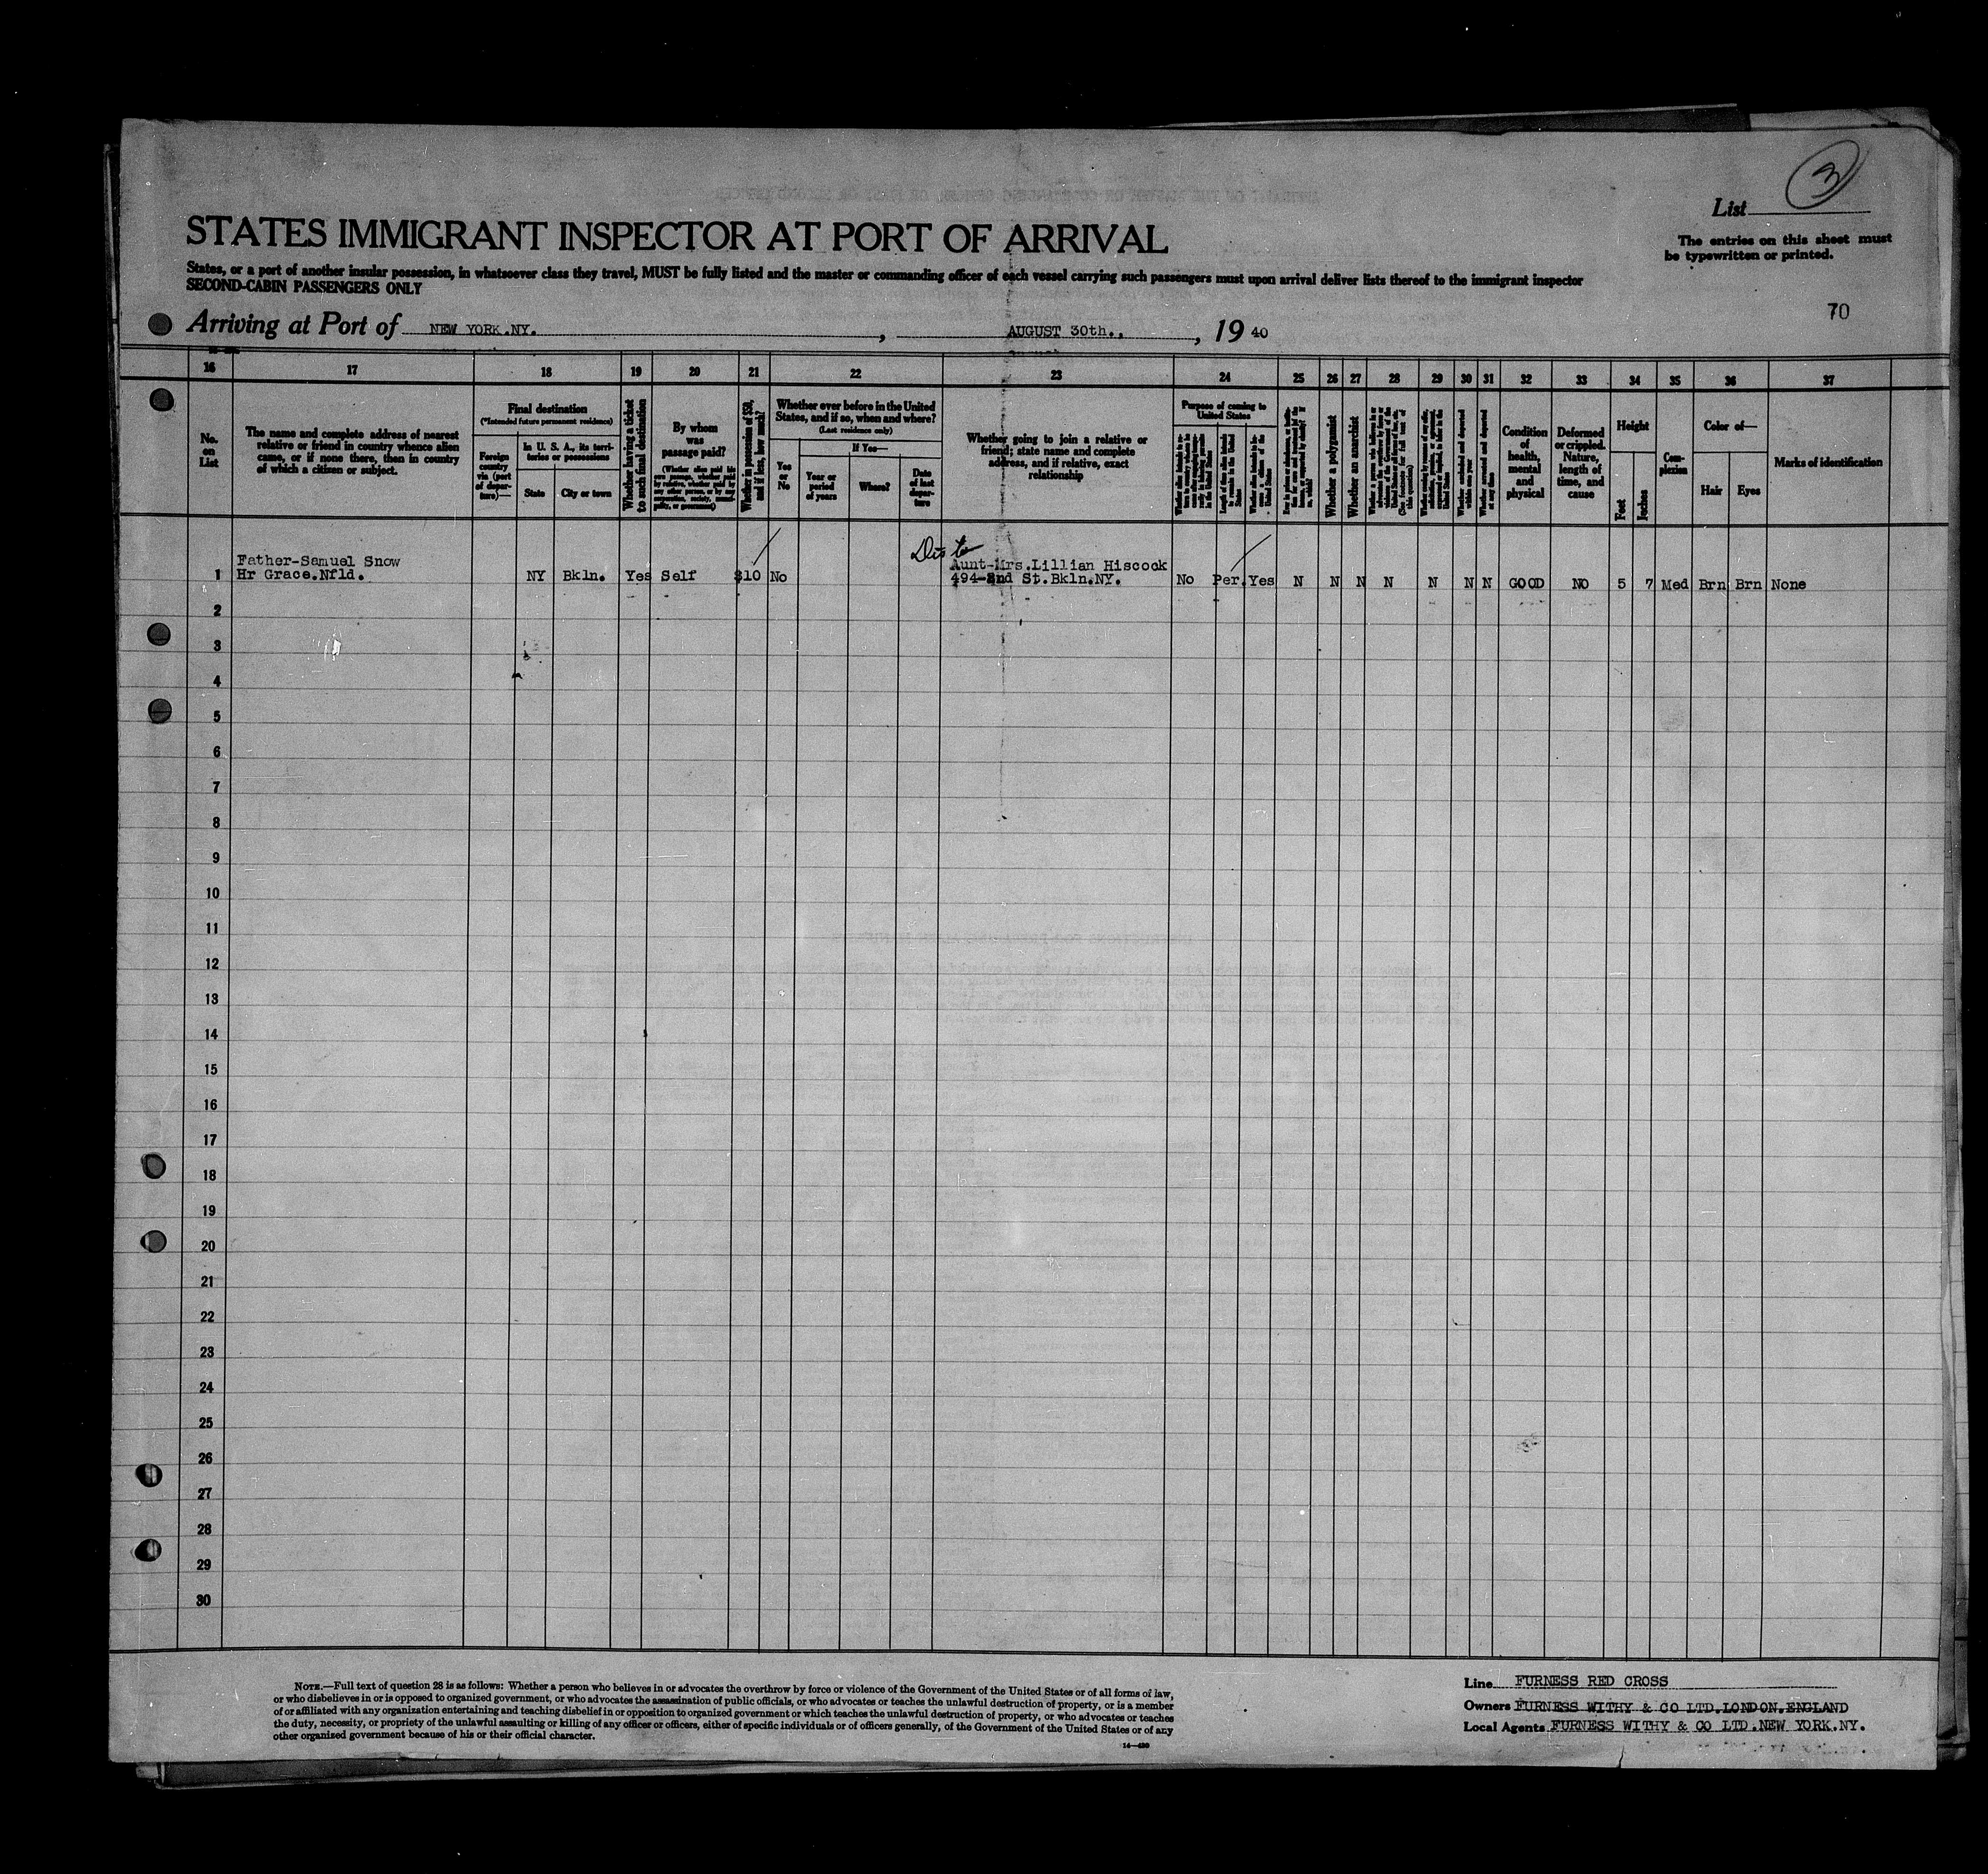 3
List
The entries on this sheet must
be typewritten or printed.
STATES IMMIGRANT INSPECTOR AT PORT OF ARRIVAL
States, or a port of another insular possession, in whatsoever class they travel, MUST be fully listed and the master or commanding officer of each vessel carrying such passengers must upon arrival deliver lists thereof to the immigrant inspector
SECOND-CABIN PASSENGERS ONLY
70
Arriving at Port of NEW YORK.NY. , AUGUST 30th., , 19 40
16 17 18 19 20 21 22 23 24 25 26 27 28 29 30 31 32 33 34 35 36 37
No.
on
List
The name and complete address of nearest
relative or friend in country whence alien
came, or if none there, then in country
of which a citizen or subject.
Final destination
(*Intended future permanent residence)
Foreign
country
via (port
of depar-
ture)—
In U. S. A., its terri-
tories or possessions
State
City or town
Whether having a ticket
to such final destination
By whom
was
passage paid?
(Whether alien paid his
own passage, whether paid
by relative, whether paid by
any other person, or by any
corporation, society, munici-
pality, or government)
Whether in possession of $50,
and if less, how much?
Whether ever before in the United
States, and if so, when and where?
(Last residence only)
Yes
or
No
If Yes—
Year or
period
of years
Where?
Date
of last
depar-
ture
Whether going to join a relative or
friend; state name and complete
address, and if relative, exact
relationship
Purpose of coming to
United States
Length of time alien intends
to remain in the United
States
Whether a polygamist
Whether an anarchist
Condition
of
health,
mental
and
physical
Deformed
or crippled.
Nature,
length of
time, and
cause
Height
Feet
Inches
Com-
plexion
Color of—
Hair
Eyes
Marks of identification
Father-Samuel Snow
Aunt-Mrs.Lillian Hiscock
1 Hr Grace.Nfld. NY Bkln. Yes Self $10 No 494-2nd St.Bkln.NY. No Per. Yes N N N N N N N GOOD NO 5 7 Med Brn Brn None
2
3
4
5
6
7
8
9
10
11
12
13
14
15
16
17
18
19
20
21
22
23
24
25
26
27
28
29
30
NOTE.—Full text of question 28 is as follows: Whether a person who believes in or advocates the overthrow by force or violence of the Government of the United States or of all forms of law,
or who disbelieves in or is opposed to organized government, or who advocates the assassination of public officials, or who advocates or teaches the unlawful destruction of property, or is a member
of or affiliated with any organization entertaining and teaching disbelief in or opposition to organized government or which teaches the unlawful destruction of property, or who advocates or teaches
the duty, necessity, or propriety of the unlawful assaulting or killing of any officer or officers, either of specific individuals or of officers generally, of the Government of the United States or of any
other organized government because of his or their official character.
14—420
Line FURNESS RED CROSS
Owners FURNESS WITHY & CO LTD.LONDON.ENGLAND
Local Agents FURNESS WITHY & CO LTD.NEW YORK.NY.